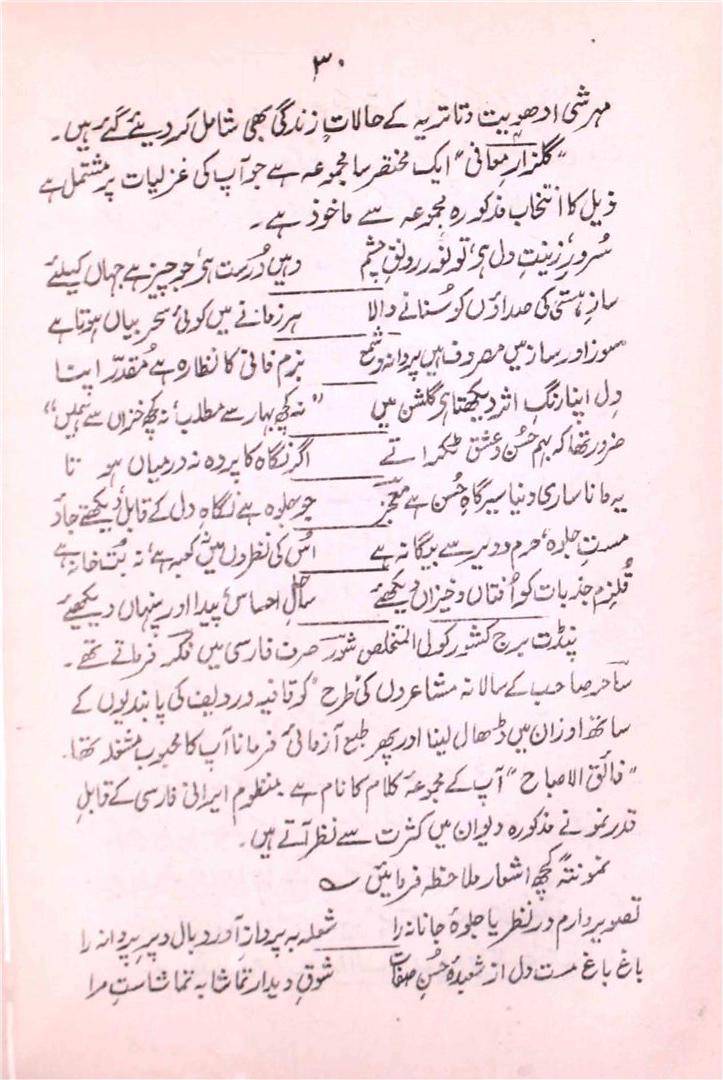 ۳۰
مہرشی ادھوبیت دتا تریہ کے حالاتِ زندگی بھی شامل کر دیئے گئے ہیں۔
”گلزارِ معانی“ ایک مختصر سا مجموعہ ہے جو آپ کی غزلیات پر مشتمل ہے
ذیل کا انتخاب مذکورہ مجموعہ سے ماخوذ ہے۔
سُرور، زینتِ دل ہو، تو نُور رونقِ چشم وہیں دُرست ہو، جو چیز ہے جہاں کیلئے
سازِ ہستی کی صداؤں کو سُنانے والا ہر زمانے میں کوئی سحر بیاں ہوتا ہے
سوز اور ساز میں مصروف ہیں پروانہ و شمع بزمِ فانی کا نظارہ ہے مُقدّر اپنا
دِل اپنا رنگِ اثر دیکھتا ہو گلشن میں ”نہ کچھ بہار سے مطلب، نہ کچھ خزاں سے ہمیں“
ضرور تھا کہ بہم حُسن و عشق ٹکراتے اگر نگاہ کا پردہ نہ درمیاں ہوتا
یہ مانا ساری دنیا سیر گاہِ حُسن ہے معجزؔ جو جلوہ ہے نگاہِ دل کے قابل، دیکھتے جاؤ
مستِ جلوہ، حرم و دیر سے بیگانہ ہے اُس کی نظروں میں نہ کعبہ ہے، نہ بُت خانہ ہے
قُلزمِ جذبات کو اُفتاں و خیزاں دیکھئے ساحلِ احساس پیدا اور پنہاں دیکھیئے
پنڈت برج کشور کول المتخلص شورؔ صرف فارسی میں فکر فرماتے تھے۔
ساحرؔ صاحب کے سالانہ مشاعروں کی طرح کو قافیہ و ردیف کی پابندیوں کے
ساتھ اوزان میں ڈھال لینا اور پھر طبع آزمائی فرمانا آپ کا محبوب مشغلہ تھا۔
”فائق الاصباح“ آپ کے مجموعۂ کلام کا نام ہے۔ منظوم ایرانی فارسی کے قابلِ
قدر نمونے مذکورہ دیوان میں کثرت سے نظر آتے ہیں۔
نمونتہً کچھ اشعار ملاحظہ فرمائیں ؎
تصویر دارم در نظر یا جلوۂ جانانہ را شعلہ بہ پرواز آورد بال و پرِ پروانہ را
باغ باغ مست دل از شعبدۂ حُسنِ صفات شوقِ دیدار تماشا بہ تماشاست مرا